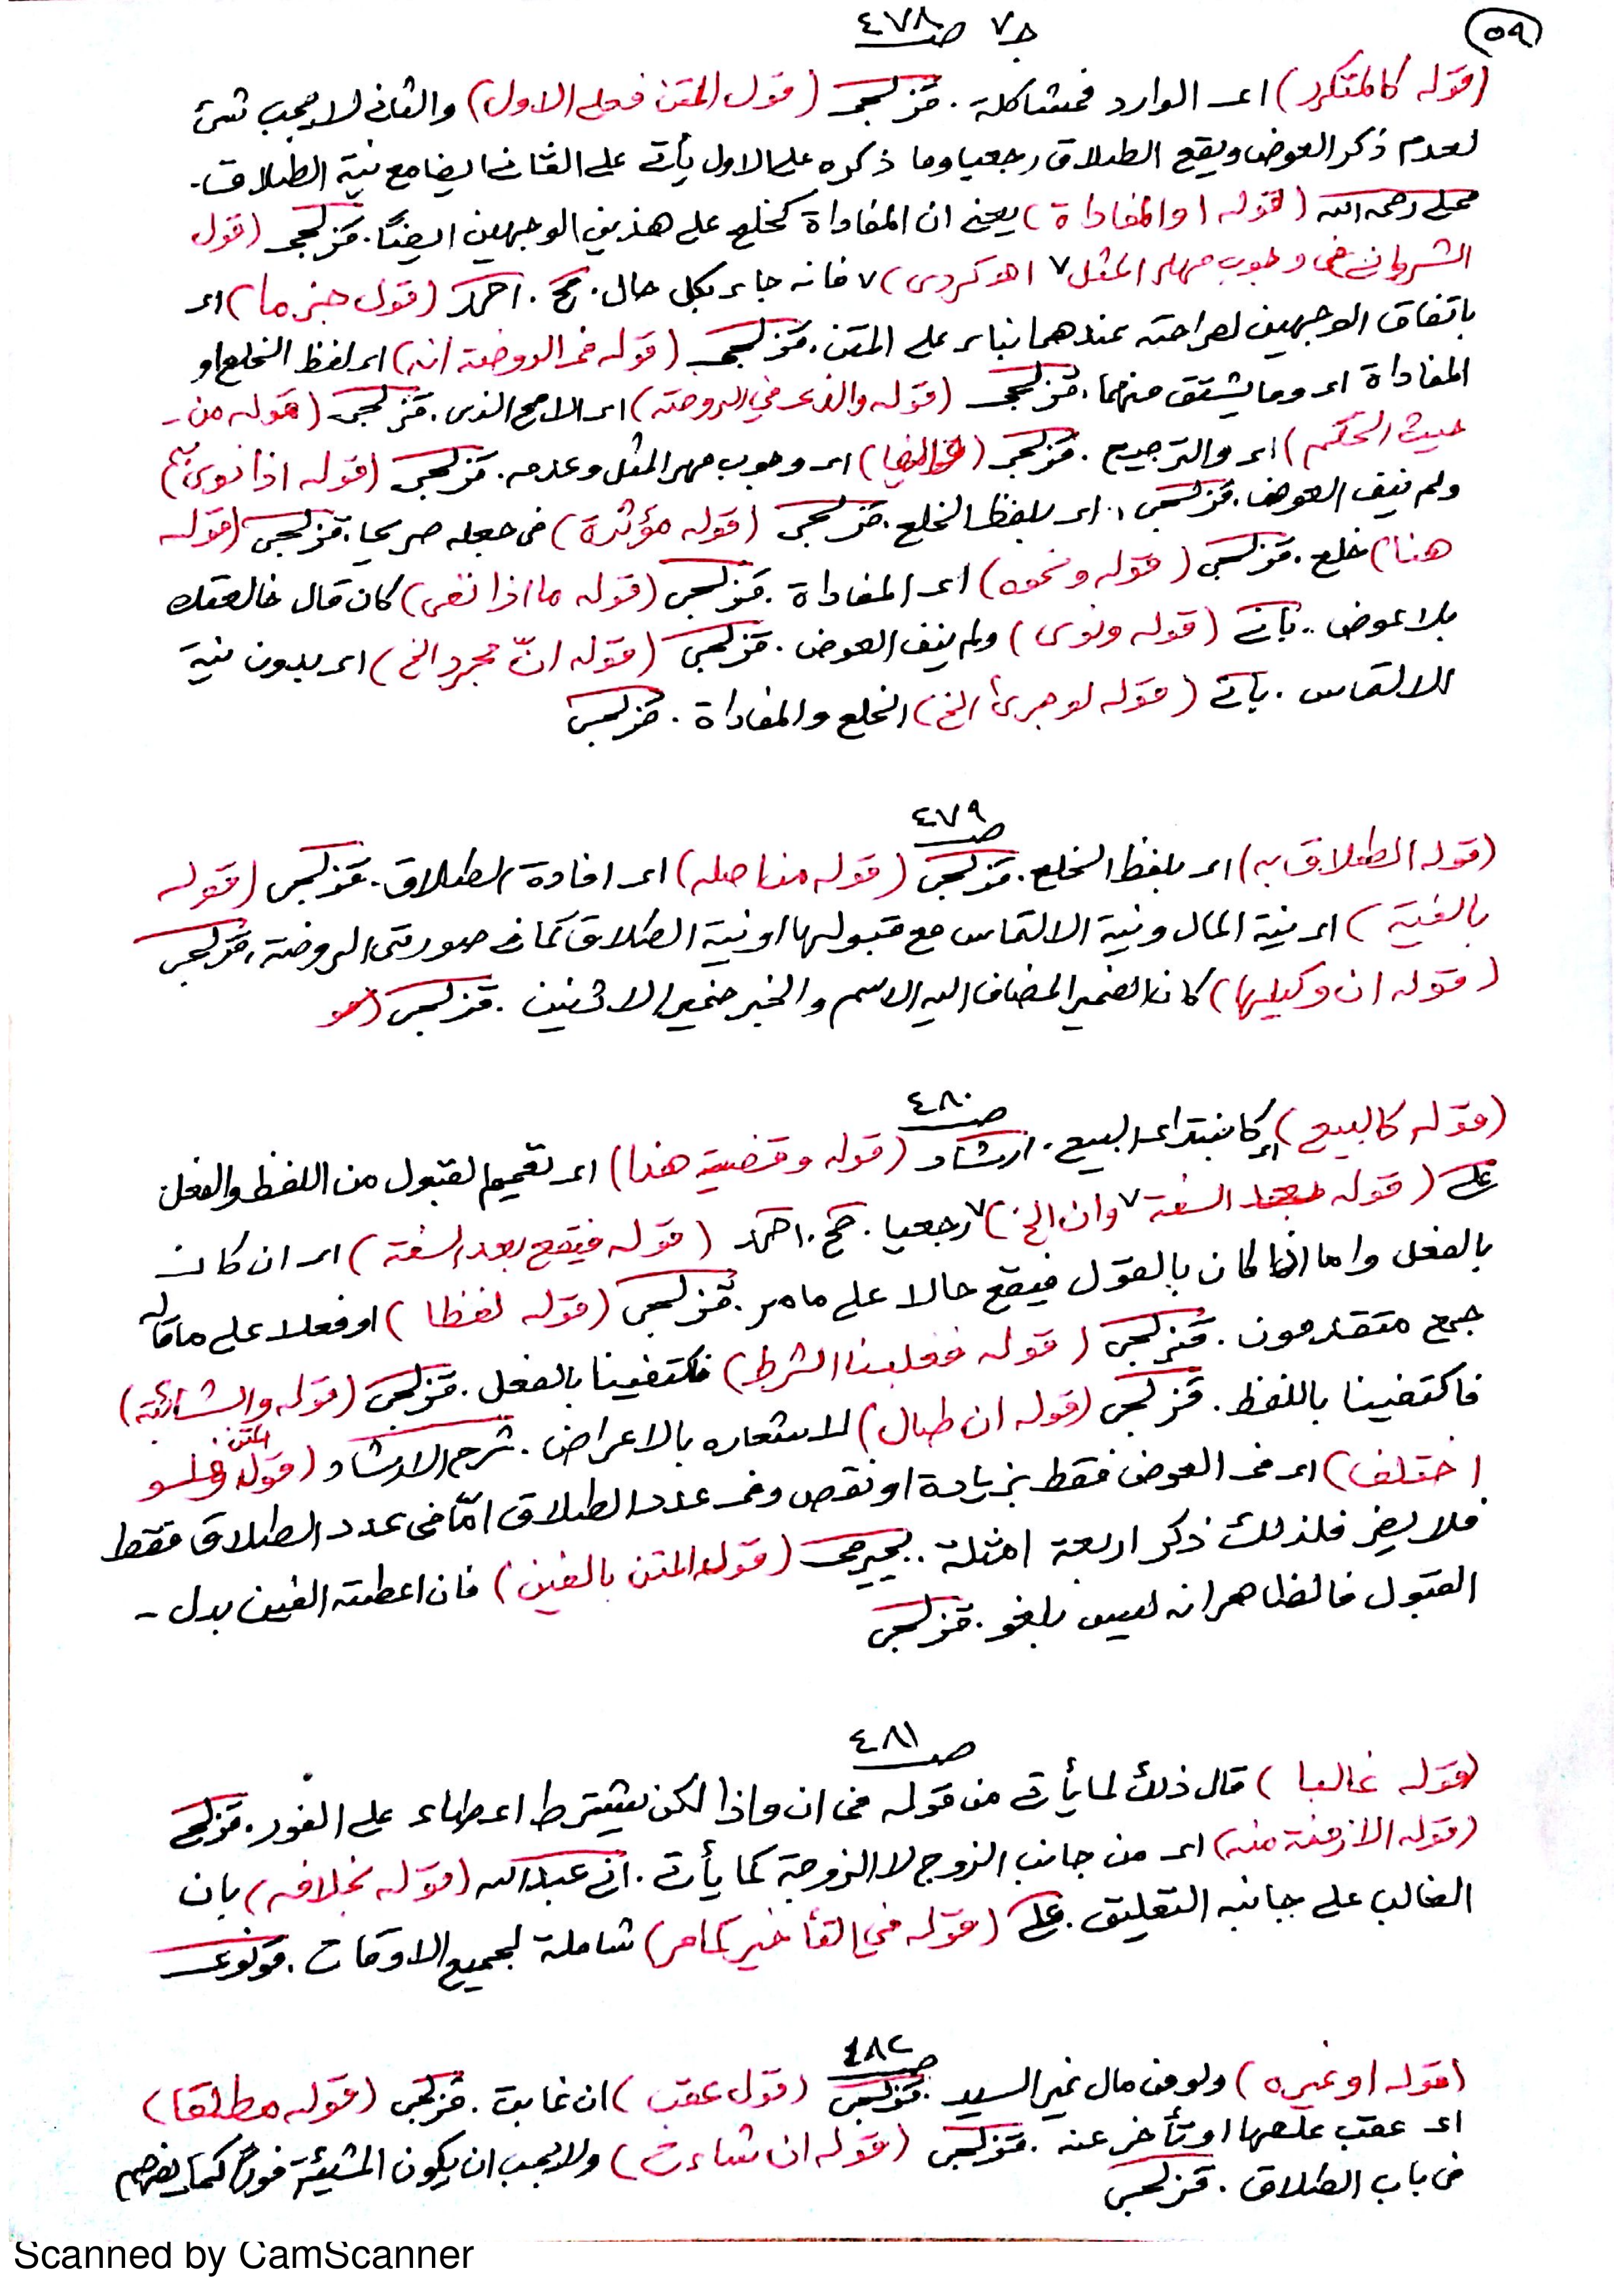 ٥٩
ج٧ ص ٤٧٨
(قوله كالمتكرر) اى الوارد فمشاكلة . قزلجى (قول المتن فعلى الاول) والثانى لا يجب شئ
لعدم ذكر العوض ويقع الطلاق رجعيا وما ذكره على الاول يأتى على الثانى ايضا مع نية الطلاق .
محلى رحمه الله (قوله او المفاداة) يعنى ان المفاداة كخلع على هذين الوجهين ايضًا . قزلجى (قول
الشروانى فى وجوب مهر المثل ٧ اهـ كردى) ٧ فانه جاء بكل حال . مح . احمد (قول جزما) اى
باتفاق الوجهين لصراحته عندهما بناء على المتن . قزلجى (قوله فى الروضة انه) اى لفظ الخلع او
المفاداة اى وما يشتق منهما . قزلجى (قوله والذى فى الروضة) اى الاصح الذى . قزلجى (قوله من
حيث الحكم) اى والترجيح . قزلجى اى وجوب مهر المثل وعدمه . قزلجى (قوله اذا نوى)
ولم ينف العوض . قزلجى ، اى بلفظ الخلع . قزلجى (قوله مؤثرة) فى جعله صريحا . قزلجى (قوله
هنا) خلع . قزلجى (قوله ونحوه) اى المفاداة . قزلجى (قوله ما اذا نفى) كان قال خالعتك
بلا عوض .. بانى (قوله ونوى) ولم ينف العوض . قزلجى (قوله انّ مجرد الخ) اى بدون نية
للالتماس . بانى (قوله لو جرى الخ) الخلع والمفاداة . قزلجى
ص ٤٧٩
(قوله الطلاق به) اى بلفظ الخلع . قزلجى (قوله من اصله) اى افادة الطلاق . قزلجى (قوله
بالنية) اى نية المال ونية الالتماس مع قبولها او نية الطلاق كما فى صورتى الروضة . قزلجى
(قوله ان وكيلها) كان الضمير المضاف اليه الاسم والخبر ضمير الاثنين . قزلجى
ص ٤٨٠
(قوله كالبيع) اى كابتداء البيع . ارشاد (قوله وقضية هذا) اى تعميم القبول من اللفظ والفعل
على (قوله السنة ٧ وان الخ) ٧ رجعيا . مح . احمد (قوله فيقع بعد السنة) اى ان كان
بالفعل واما اذا كان بالقول فيقع حالا على ما مر . قزلجى (قوله لفظا) او فعلا على ما قاله
جمع متقدمون . قزلجى (قوله فغلبنا الشرط) فاكتفينا بالفعل . قزلجى (قوله والشائبة)
فاكتفينا باللفظ . قزلجى (قوله ان طال) لاشعاره بالاعراض . شرح الارشاد (قوله المتن فلو
اختلف) اى فى العوض فقط بزيادة او نقص وفى عدد الطلاق امّا فى عدد الطلاق فقط
فلا يضر فلذلك ذكر اربعة امثلة .. بجيرمى (قوله المتن بالفين) فان اعطته الفين بدل
القبول فالظاهر انه ليس بلغو . قزلجى
ص ٤٨١
(قوله غالبا) قال ذلك لما يأتى من قوله فى ان واذا لكن يشترط اعطاء على الفور . قزلجى
(قوله الازمنة منه) اى من جانب الزوج لا الزوجة كما يأتى . انى عبدالله (قوله بخلافه) بان
الغالب على جانبه التعليق . على (قوله فى التأخير كما مر) شاملة لجميع الاوقات .
ص ٤٨٢
(قوله او غيره) ولو من مال غير السيد . قزلجى (قول عقب) ان غابت . قزلجى (قوله مطلقا)
اى عقب علمها او تأخر عنه . قزلجى (قوله ان شاءت) ولا يجب ان يكون المشيئة فورًا كما يفهم
فى باب الطلاق . قزلجى
Scanned by CamScanner